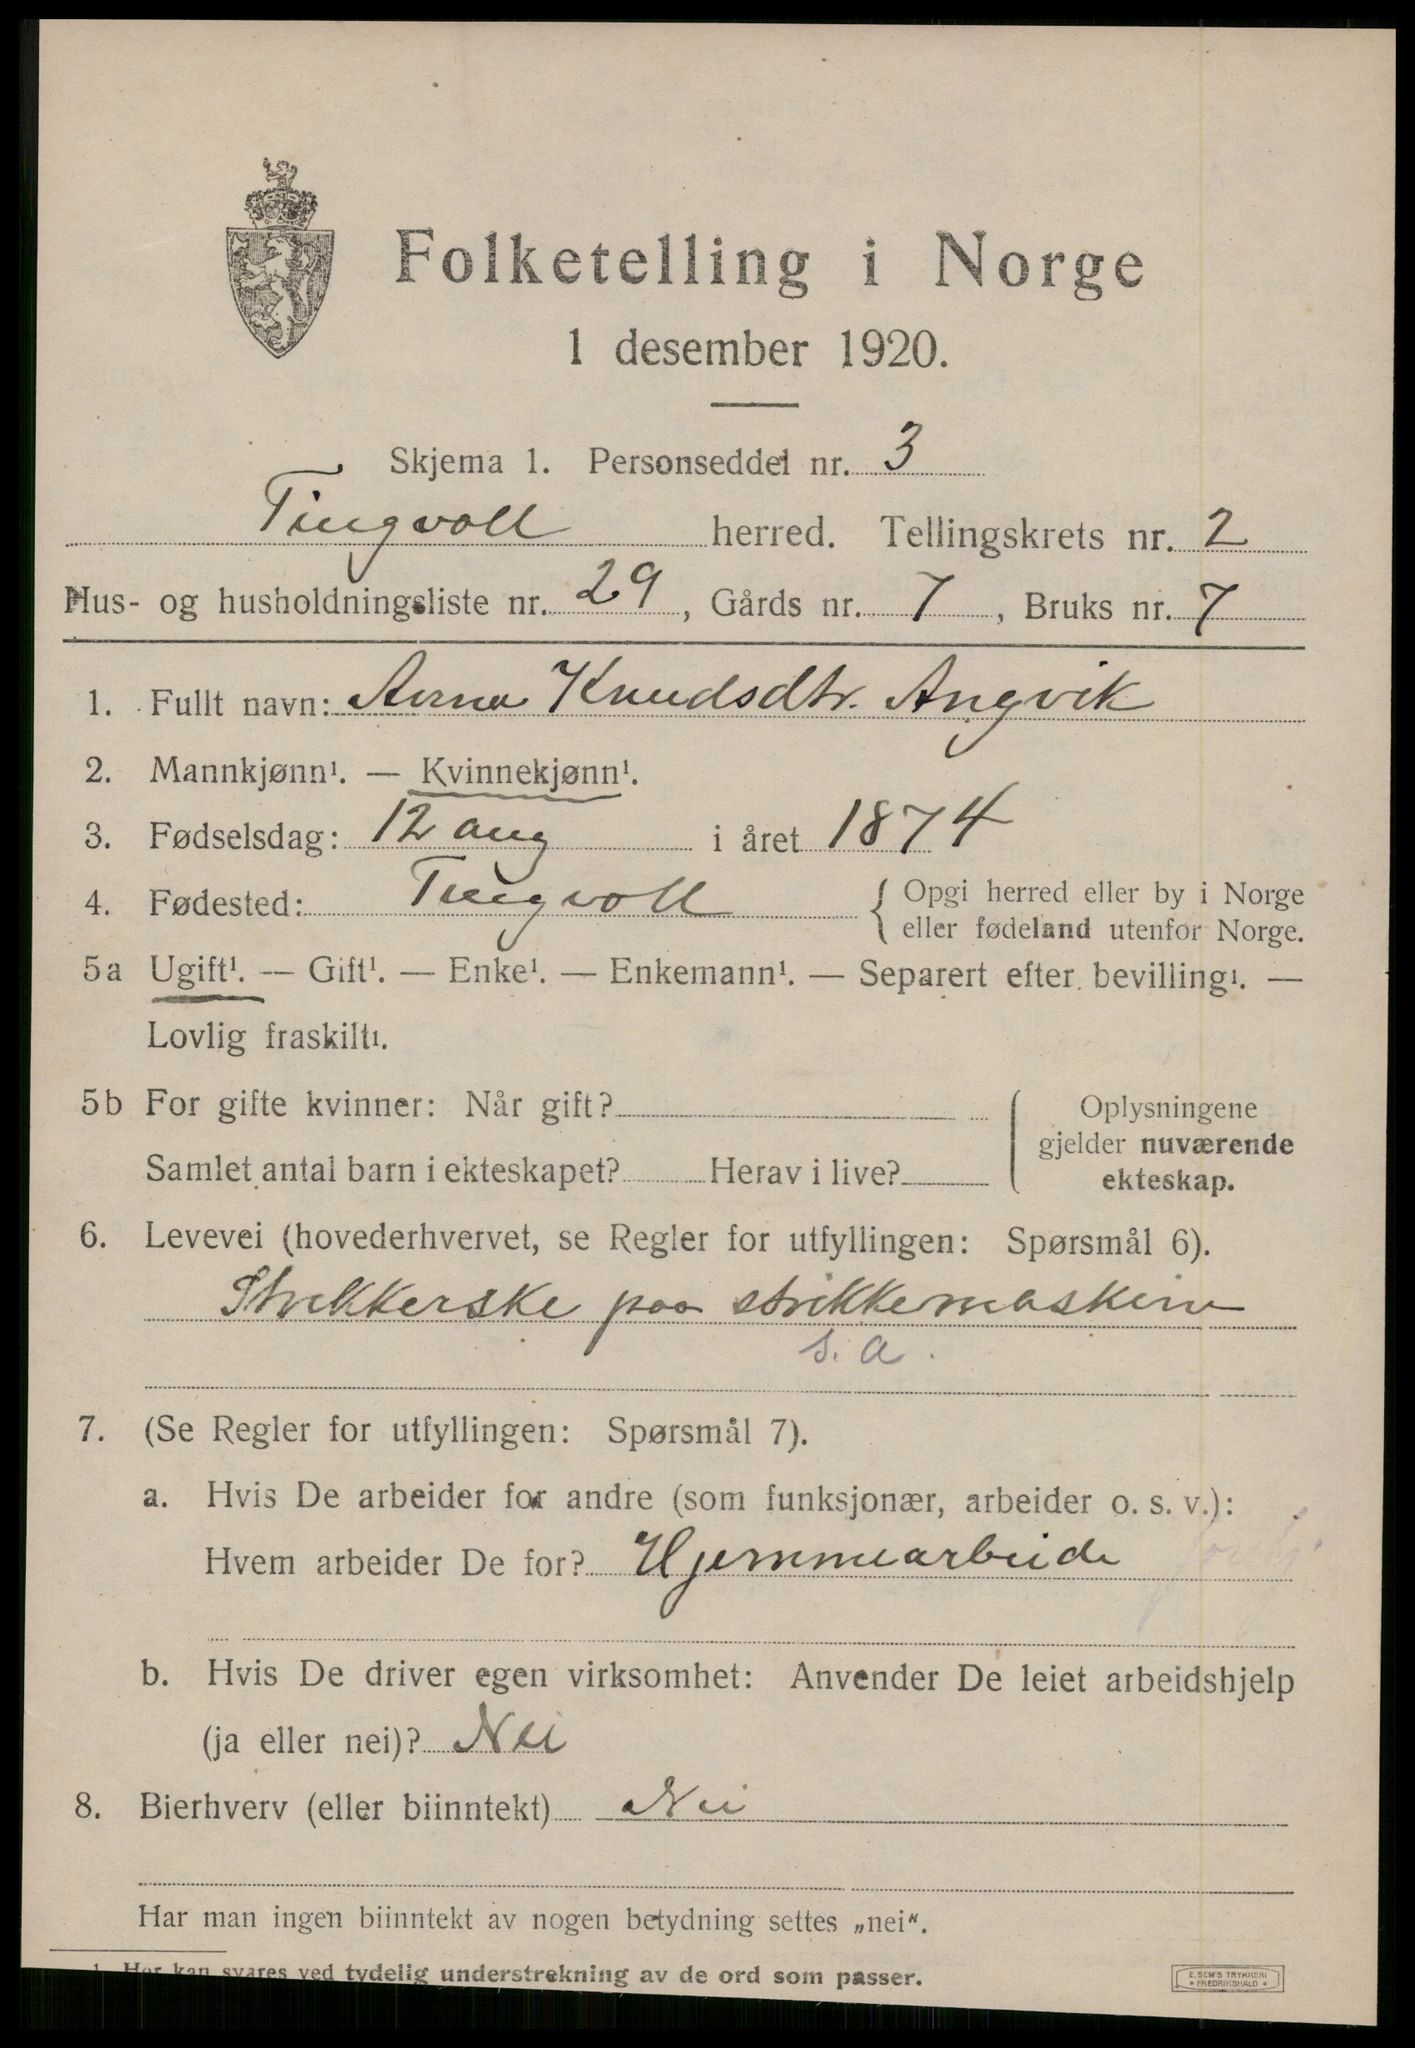 Folketelling i Norge
1 desember 1920.
Skjema 1. Personseddel nr. 3
Tingvoll herred. Tellingskrets nr. 2
Hus- og husholdningsliste nr. 29, Gårds nr. 7, Bruks nr. 7
1. Fullt navn: Anna Knudsdtr. Angvik
2. Mannkjønn¹. — Kvinnekjønn¹.
3. Fødselsdag: 12 aug i året 1874
4. Fødested: Tingvoll { Opgi herred eller by i Norge
eller fødeland utenfor Norge.
5a Ugift¹. — Gift¹. — Enke¹. — Enkemann¹. — Separert efter bevilling¹. —
Lovlig fraskilt¹.
5b For gifte kvinner: Når gift?
Samlet antal barn i ekteskapet? Herav i live?
{ Oplysningene
gjelder nuværende
ekteskap.
6. Levevei (hovederhvervet, se Regler for utfyllingen: Spørsmål 6).
Strikkerske paa strikkemaskin
s. a.
7. (Se Regler for utfyllingen: Spørsmål 7).
a. Hvis De arbeider for andre (som funksjonær, arbeider o. s. v.):
Hvem arbeider De for? Hjemmearbeide
b. Hvis De driver egen virksomhet: Anvender De leiet arbeidshjelp
(ja eller nei)? Nei
8. Bierhverv (eller biinntekt) Nei
Har man ingen biinntekt av nogen betydning settes „nei“.
¹ Her kan svares ved tydelig understrekning av de ord som passer.
E. SEM'S TRYKKERI
• FREDRIKSHALD •